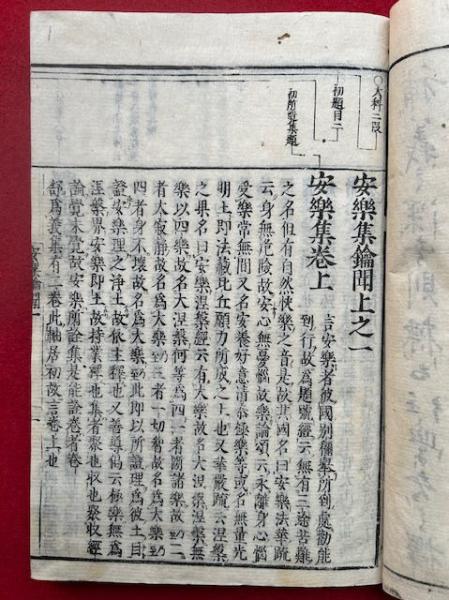 ○大科二段
初題目二
初所釋集題
安樂集鑰聞上之一
安樂集卷上
言安樂者彼國別稱擧所到處勸能
到行故爲題號經云無有三塗苦難
之名但有自然快樂之音是故其國名曰安樂法華疏
云身無危險故安心無憂惱故樂論頌云永離身心惱
受樂常無間又名安養好意淸泰極樂等或名無量光
明土即法藏比丘願力所成之土也又華嚴疏云涅槃
之果名曰安樂涅槃經云有大樂故名大涅槃涅槃無
樂以四樂故名大涅槃何等爲四一者斷諸樂故二
者大寂靜故名爲大樂三者一切智故名爲大樂
四者身不壞故名爲大樂此即以所證理爲彼土目
證安樂理之淨土故依主釋也又善導偈云極樂無爲
涅槃界安樂即土故持業釋也集者聚也收也聚收經
論覺未覺故安樂所詮集是能詮卷者卷
舒爲義集有二卷此軸居初故云卷上也
安樂鑰聞一